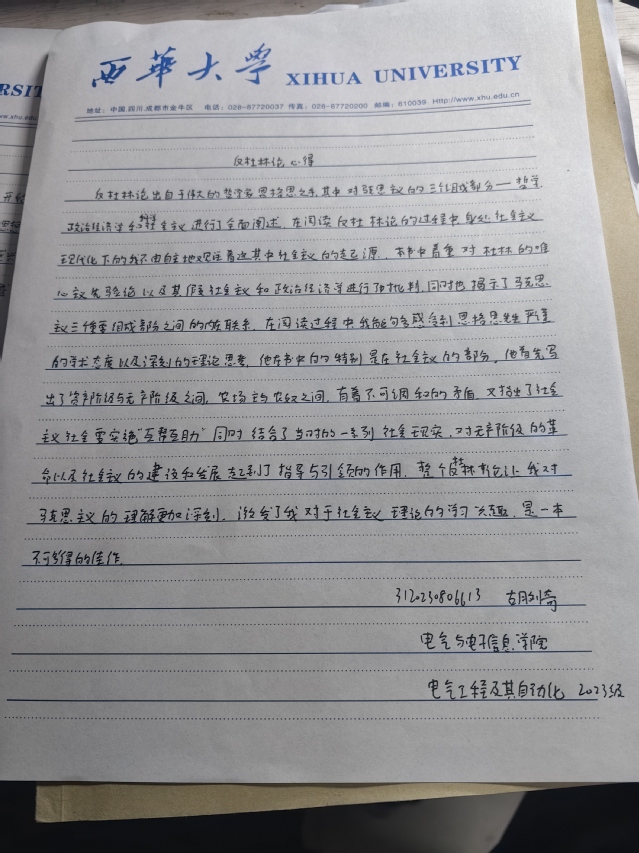 西華大学 XIHUA UNIVERSITY
地址：中国.四川.成都市金牛区 电话：028-87720037 传真：028-87720200 邮编：610039 Http://www.xhu.edu.cn
反杜林论心得
反杜林论出自于伟大的哲学家恩格思之手,其中对马克思主义的三个组成部分一哲学
政治经济学和科学社会主义进行了全面阐述,在阅读反杜林论的过程中身处社会主义
现代化下的我不由自主地观看这其中社会主义的起源,本书中着重对杜林的唯
心主义先验论以及其假社会主义和政治经济学进行了批判,同时也揭示了马克思
主义三个重要组成部分之间的内在联系,在阅读过程中我能够感受到恩格思先生严谨
的学术态度以及深刻的理论思考,他在书中的特别是在社会主义的部分,他首先写
出了资产阶级与无产阶级之间,农场主与农奴之间,有着不可调和的矛盾,又指出了社会
主义社会要实施“互帮互助”同时结合了当时的一系列社会现实,对无产阶级的革
命以及社会主义的建设和发展起到了指导与引领的作用,整个反杜林论让我对
马克思主义的理解更加深刻,激发了我对于社会主义理论的学习兴趣,是一本
不可多得的佳作.
3120230806613
电气与电子信息学院
电气工程及其自动化 2023级
RSIT